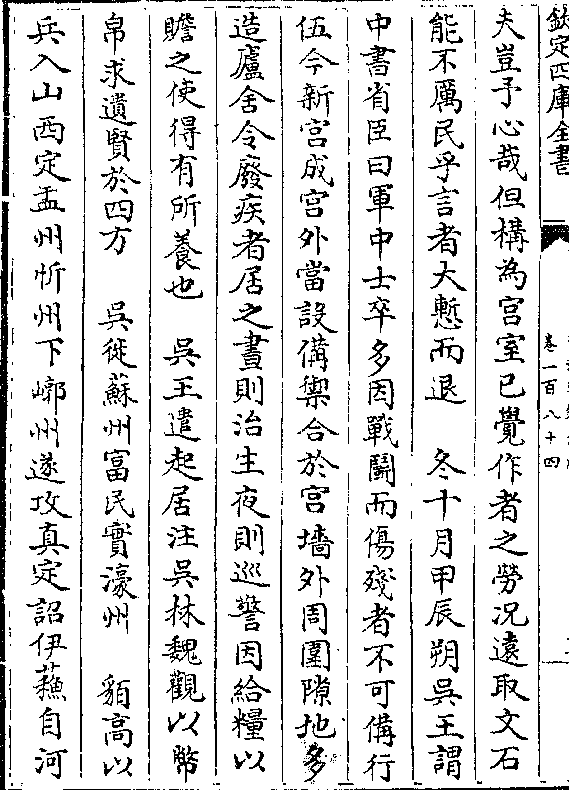 欽定四庫全書
卷一百八十四
夫豈予心哉但構為宫室已覺作者之勞况遠取文石
能不厲民乎言者大慙而退　冬十月甲辰朔吳王謂
中書省臣曰軍中士卒多因戰鬭而傷殘者不可備行
伍今新宫成宫外當設備禦合於宫墻外周圍隙地多
造廬舍令廢疾者居之晝則治生夜則巡警因給糧以
贍之使得有所養也　吳王遣起居注吳林魏觀以幣
帛求遺賢於四方　吳徙蘇州富民實濠州　貊高以
兵入山西定孟州忻州下嶂州遂攻真定詔伊蘓自河